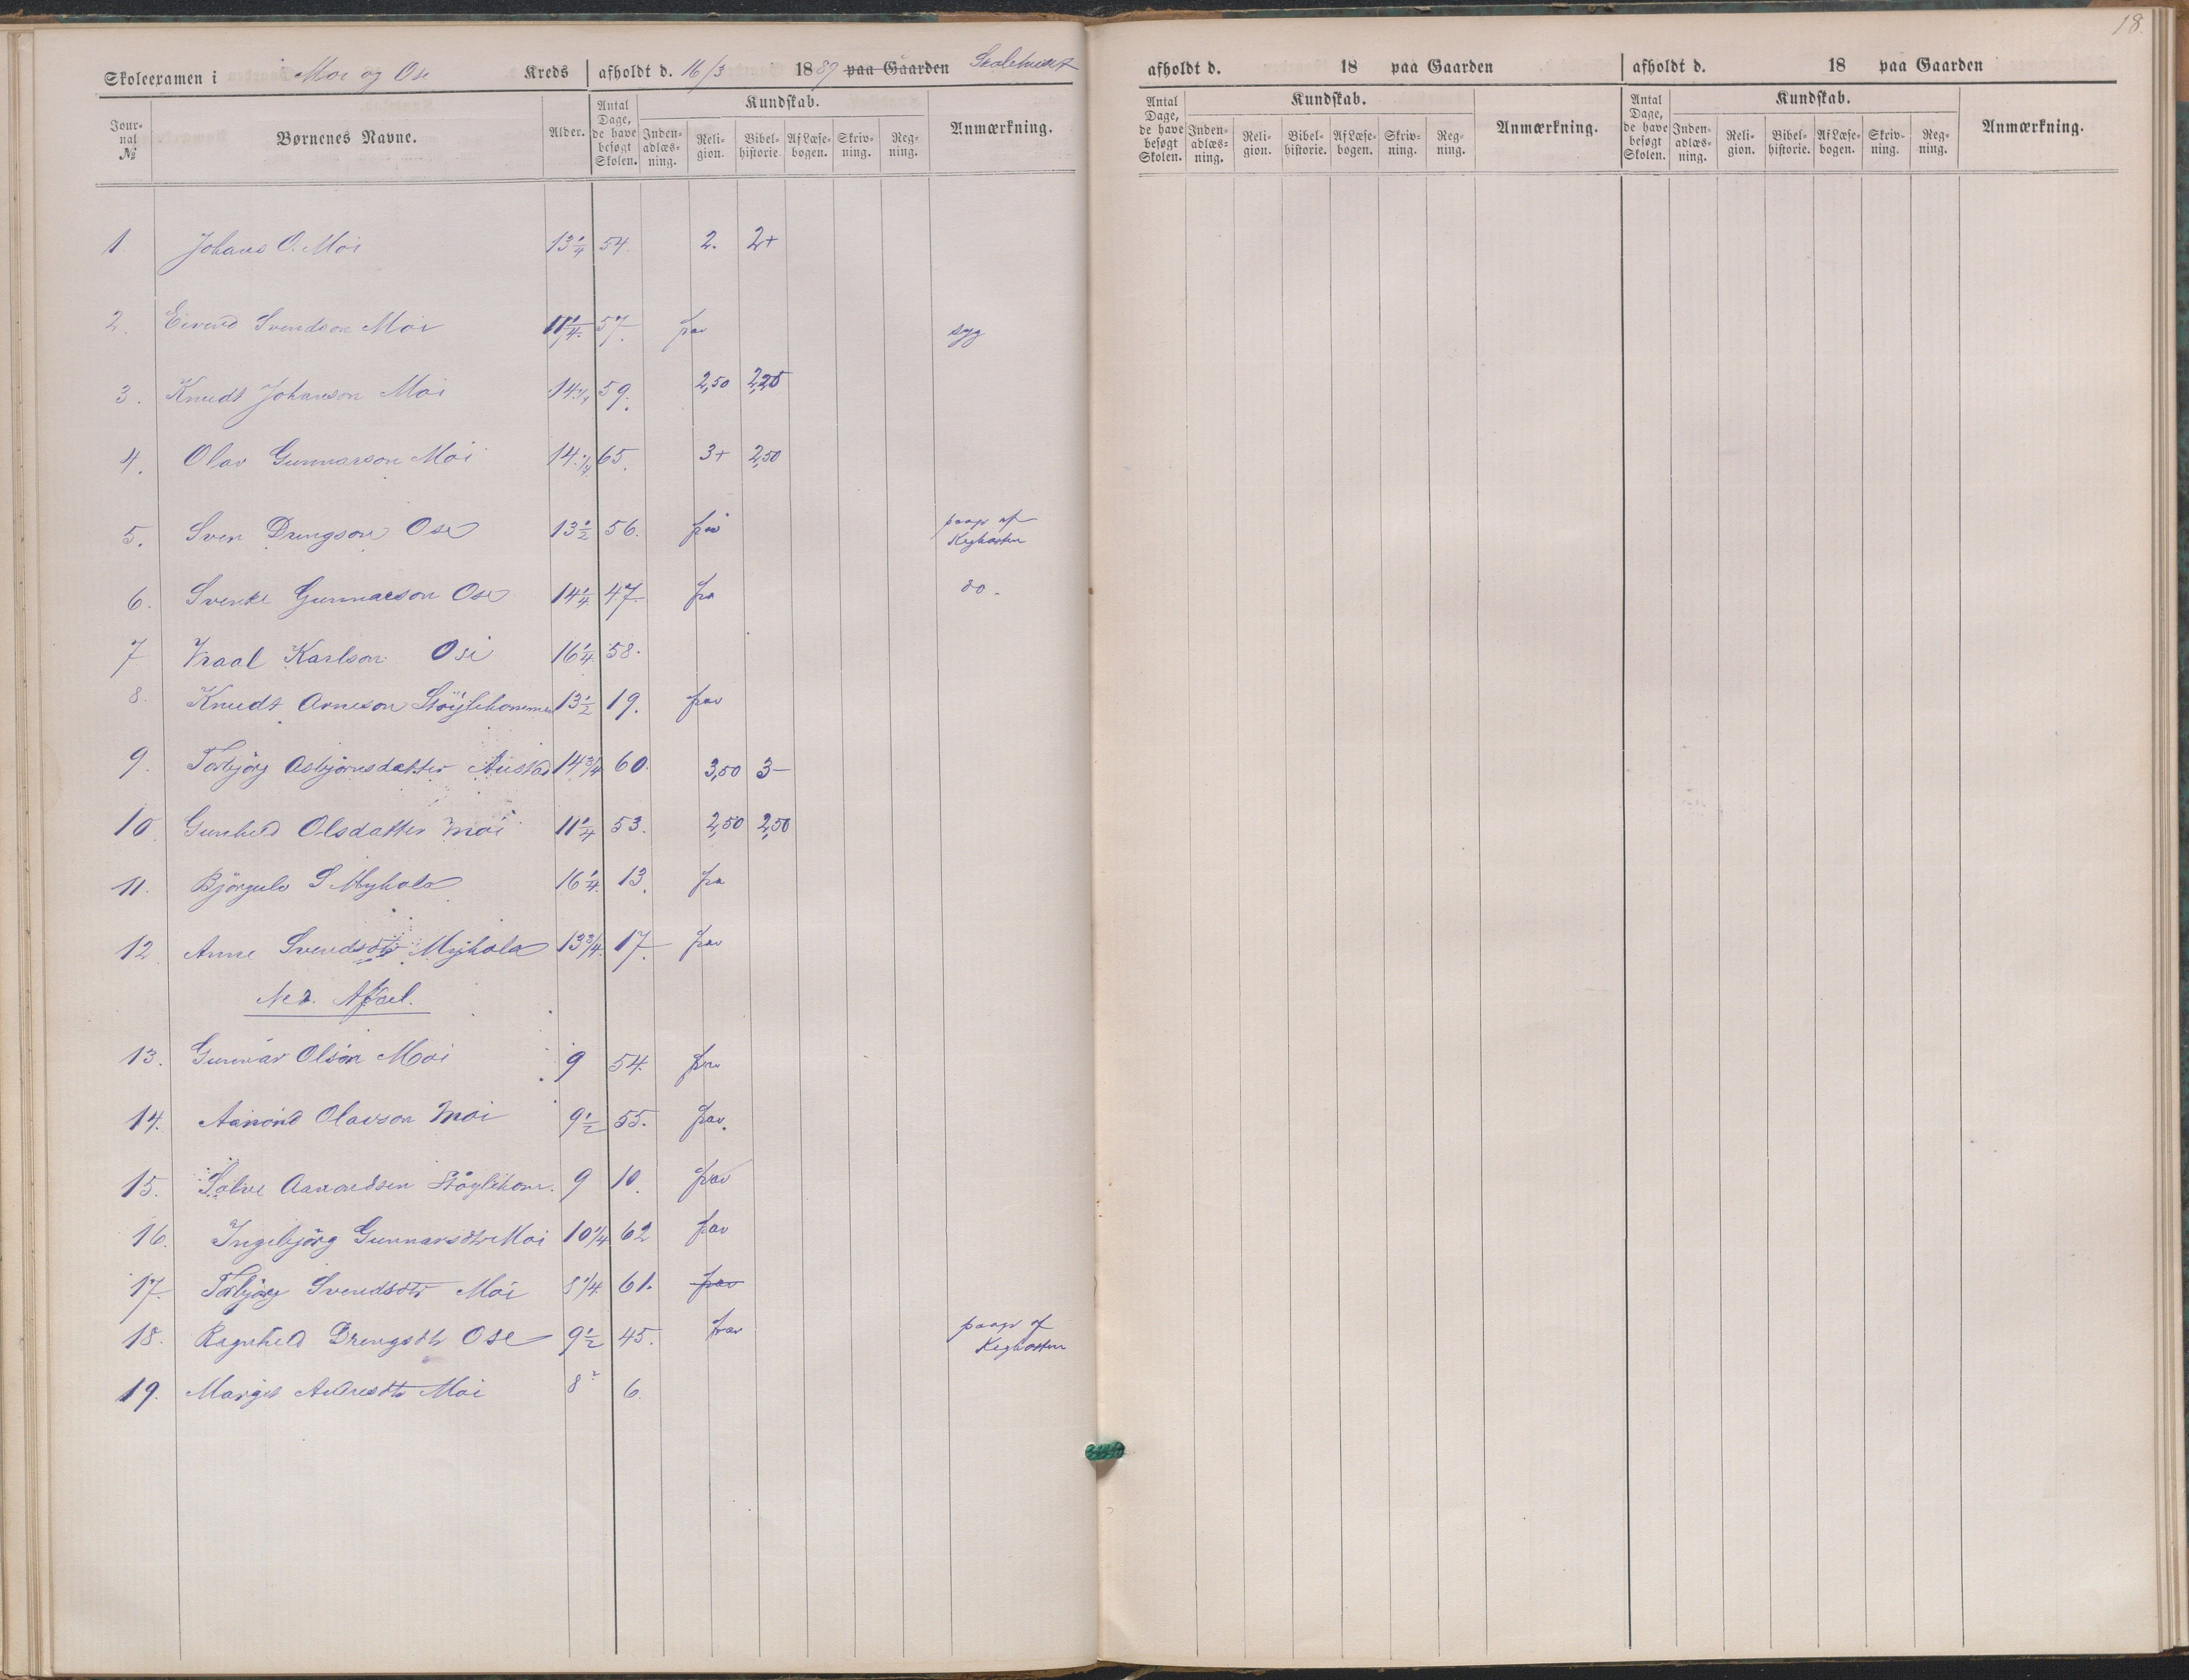 18.
Skoleexamen i Moi og Ose Kreds afholdt d. 16/3 1889 paa Gaarden Skolehuset
Journal № Børnenes Navne. Alder. Antal Dage, de have besøgt Skolen. Kundskab. Indenadlæsning. Religion. Bibelhistorie. Af Læsebogen. Skrivning. Regning. Anmærkning.
afholdt d. 18 paa Gaarden
Antal Dage, de have besøgt Skolen. Kundskab. Indenadlæsning. Religion. Bibelhistorie. Af Læsebogen. Skrivning. Regning. Anmærkning.
afholdt d. 18 paa Gaarden
Antal Dage, de have besøgt Skolen. Kundskab. Indenadlæsning. Religion. Bibelhistorie. Af Læsebogen. Skrivning. Regning. Anmærkning.
1 Johans O. Moi 13 1/4 54. 2. 2+
2. Eivind Svendson Moi 11 1/4. 57. frav syg
3. Knudt Johanson Moi 14 1/4 59. 2,50 2,25
4. Olav Gunnarson Moi 14. 1/4 65. 3+ 2,50
5. Sven Drengson Ose 13 1/2 56. fra paagr af Kighosten
6. Svenke Gunnarson Ose 14 1/4 47. fra do.
7 Vraal Karlson Ose 16 1/4. 58.
8. Knudt Arneson Støylehommen 13 1/2 19. frav
9. Torbjørg Asbjørnsdatter Austad 14 3/4 60. 3,50 3-
10. Gunhild Olsdatter Moi 11 1/4 53. 2,50 2,50
11. Bjørgulv S Myhola 16 1/4. 13. fra
12. Anne Svendsdtr Myhola 13 3/4. 17. frav
Ned. Afdel.
13. Gunnar Olson Moi 9 54. frav
14. Aanond Olavson Moi 9 1/2 55. frav.
15. Salve Aanondsen Støylehom. 9 10. frav
16. Ingebjørg Gunnarsdtr Moi 10 1/4 62 frav
17. Torbjørg Svendsdtr Moi 8 1/4. 61. frav
18. Ragnhild Drengsdtr Ose 9 1/2 45. frav paagr af Kighosten
19. Margit Andresdtr Moi 8 6.